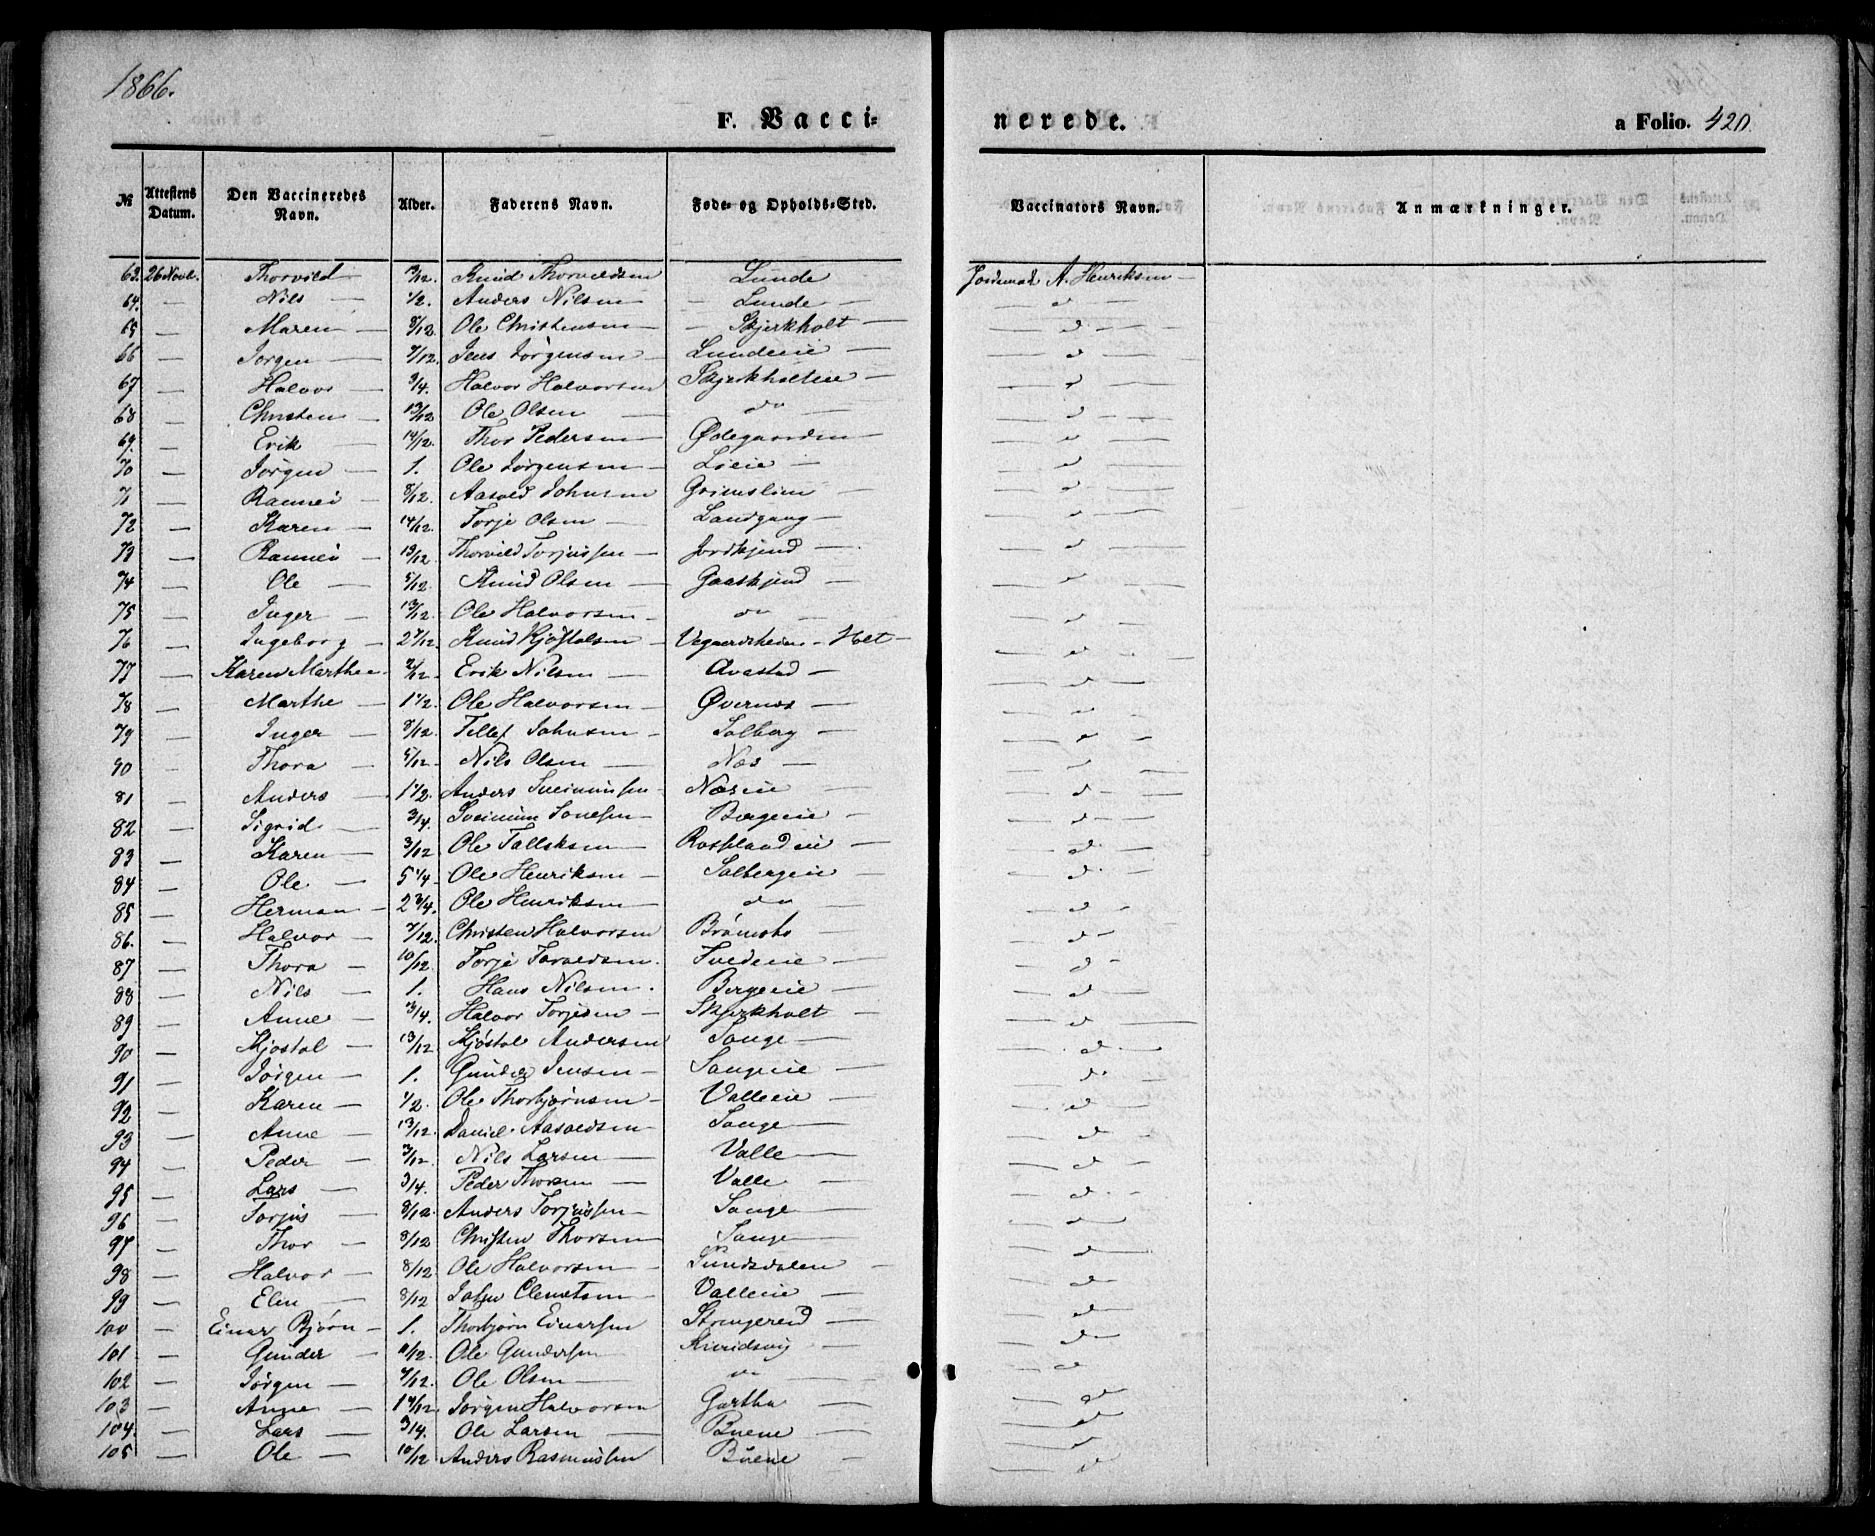 1866.
F. Vacci-
nerede.
a Folio. 420.
№ Attestens Datum. Den Vaccineredes Navn. Alder. Faderens Navn. Føde- og Opholds-Sted. Vaccinators Navn. Anmærkninger.
63. 26 Novb. Thorvild 13/12 Knud Thorvildsen Lunde Jordemod. A. Henriksen
64. — Nils — 1/2. Anders Nilsen — Lunde — d
65. — Maren — 8/12. Ole Christensen — Skjerkholt — d
66 — Jørgen — 7/12. Jens Jørgensen — Lundeeie — d
67 — Halvor — 3/4. Halvor Halvorsen Skjerkholteie — d
68 — Christen — 13/12 Ole Olsen — do — d
69. — Erik — 14/12. Thor Pedersen — Ødegaarden — d
70 — Jørgen — 1. Ole Jørgensen — Løeie — d
71 — Rannei — 8/12. Aasold Johnsen Grimslien — d
72 — Karen — 14/12. Torje Olsen — Landgang — d
73 — Rannei — 13/12. Thorvild Torjussen — Jordkjend — d
74 — Ole — 5/12 Knud Olsen — Gaaskjend — d
75 — Inger — 13/12 Ole Halvorsen — do — d
76 — Ingeborg — 2 7/12. Knud Kjøstolsen — Vegaardsheien — Holt — d
77 — Karen Marthea — 2/12 Erik Nilsen — Avestad — d
78 — Marthe — 1 1/2. Ole Halvorsen — Øvernes — d
79 — Inger — 8/12. Tellef Johnsen — Solberg — d
80 — Thora 5/12 — Nils Olsen — Næs — d
81 — Anders — 1 1/2. Anders Sveinunsen — Næseie — d
82 — Sigrid — 3/4. Sveinun Tønesen — Bergeie — d
83 — Karen — 3/12. Ole Tallaksen — Rosplandeie — d
84 — Ole — 5 1/4 — Ole Henriksen — Solbergeie — d
85 — Herman — 2 3/4. Ole Henriksen — do — d
86. — Halvor — 7/12. Christen Halvorsen Brømsbo — d
87 — Thora — 10/12 Torje Torvildsen. Tvedeeie — d
88 — Nils — 1. Hans Nilsen. Bergeie — d
89 — Anne — 3/4. Halvor Torjesen — Skjerkholt — d
90 — Kjøstol — 13/12 Kjøstol Andersen Songe — d
91 — Jørgen — 1. Gunder Jensen — Songeeie — d
92 — Karen — 1/2. Ole Thorbjørnsen — Valleeie — d
93 — Anne — 13/12. Daniel Aasoldsen — Songe — d
94 — Peder — 3/12. Nils Larsen — Valle — d
95 — Lars — 3/4. Peder Thorsen — Valle — d
96 — Torjus — 8/12. Anders Torjussen — Songe — d
97 — Thor — 8/12 Christen Thorsen Songe — d
98 — Halvor — 8/12. Ole Halvorsen — Sundsdalen — d
99 — Elen — 8/12 John Clemetsen — Valleeie — d
100 — Einar Bjørn — 1. Thorbjørn Einersen Strengereid — d
101 — Gunder — Ole Gundersen Kveidsvig — d
102 — Jørgen — 7/12. Ole Olsen — do — d
103 — Anne — Jørgen Halvorsen Gartha — d
104. — Lars — 3/4. Ole Larsen — Buene — d
105 — Ole — 10/12 Anders Rasmussen Buene — d